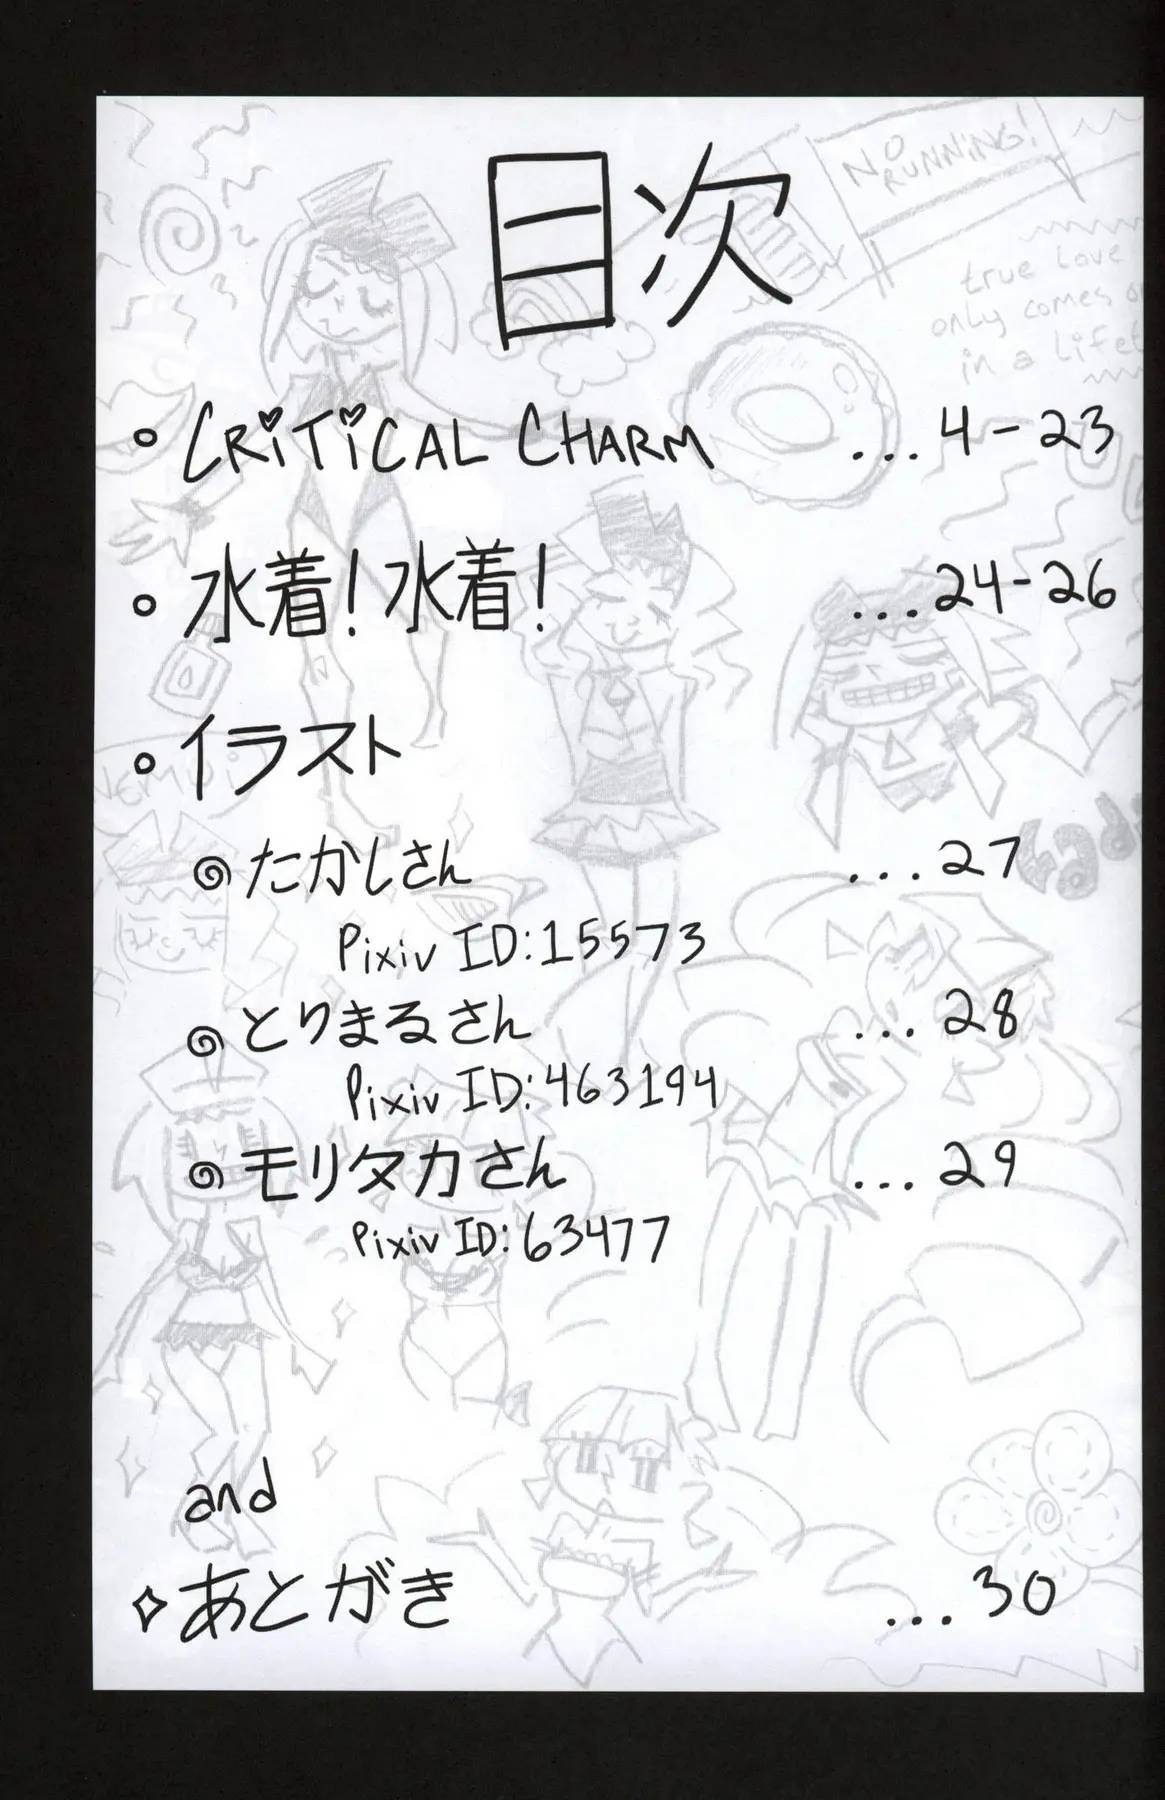 目次
NO RUNNING!
true love
only comes
in a
CRiTiCAL CHARM ...4-23
水着!水着! ...24-26
イラスト
たかしさん ...27
Pixiv ID:15573
とりまるさん ...28
Pixiv ID:463194
モリタカさん ...29
Pixiv ID:63477
and
あとがき ...30